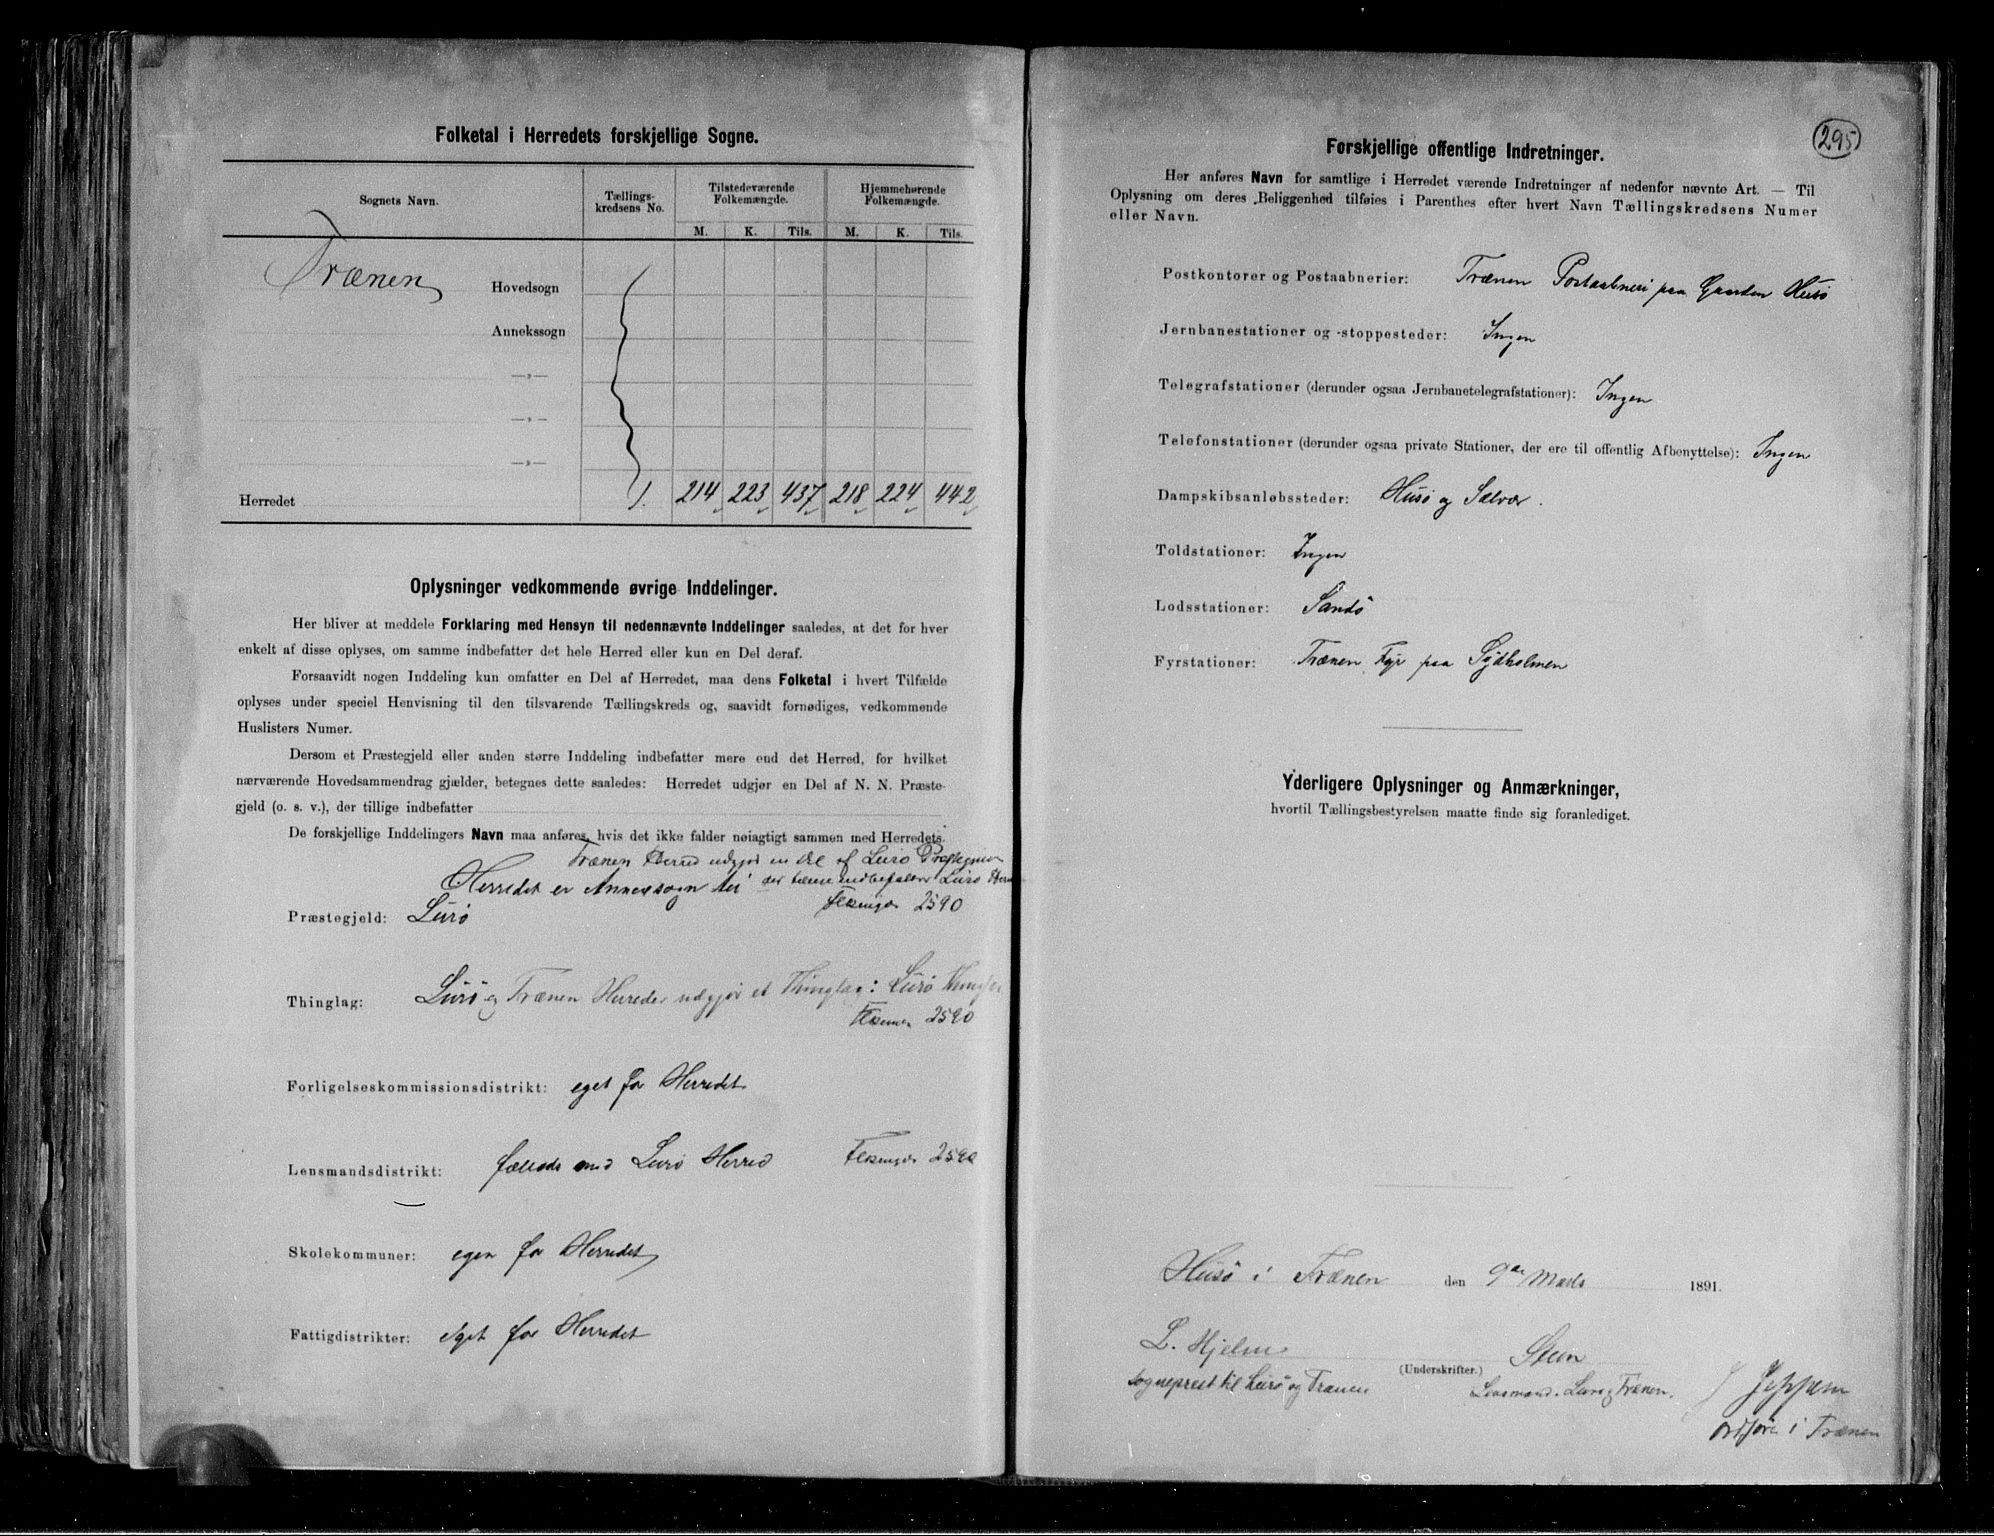 Folketal i Herredets forskjellige Sogne.
Sognets Navn. Tællings-kredsens No. Tilstedeværende Folkemængde. Hjemmehørende Folkemængde.
M. K. Tils. M. K. Tils.
Trænen Hovedsogn
Annekssogn
—»—
—»—
—»—
Herredet 1. 214 223 437 218 224 442
Oplysninger vedkommende øvrige Inddelinger.
Her bliver at meddele Forklaring med Hensyn til nedennævnte Inddelinger saaledes, at det for hver
enkelt af disse oplyses, om samme indbefatter det hele Herred eller kun en Del deraf.
Forsaavidt nogen Inddeling kun omfatter en Del af Herredet, maa dens Folketal i hvert Tilfælde
oplyses under speciel Henvisning til den tilsvarende Tællingskreds og, saavidt fornødiges, vedkommende
Huslisters Numer.
Dersom et Præstegjeld eller anden større Inddeling indbefatter mere end det Herred, for hvilket
nærværende Hovedsammendrag gjælder, betegnes dette saaledes: Herredet udgjør en Del af N. N. Præste-
gjeld (o. s. v.), der tillige indbefatter
De forskjellige Inddelingers Navn maa anføres, hvis det ikke falder nøiagtigt sammen med Herredets.
Trænen Herred udgjør en del af Lurö
Herredet er Annexsogn til der tillige indbefatter Lurö
Præstegjeld: Lurö 2590
Thinglag: Lurö og Trænen Herreder udgjör et Thinglag: Lurö
2590
Forligelseskommissionsdistrikt: eget for Herredet
Lensmandsdistrikt: fælleds med Lurö Herred 2590
Skolekommuner: egen for Herredet
Fattigdistrikter: eget for Herredet
295
Forskjellige offentlige Indretninger.
Her anføres Navn for samtlige i Herredet værende Indretninger af nedenfor nævnte Art. — Til
Oplysning om deres Beliggenhed tilføies i Parenthes efter hvert Navn Tællingskredsens Numer
eller Navn.
Postkontorer og Postaabnerier: Trænen Postaabneri paa Gaarden Husö
Jernbanestationer og -stoppesteder: Ingen
Telegrafstationer (derunder ogsaa Jernbanetelegrafstationer): Ingen
Telefonstationer (derunder ogsaa private Stationer, der ere til offentlig Afbenyttelse): Ingen
Dampskibsanløbssteder: Husö og Selvær.
Toldstationer: Ingen
Lodsstationer: Sandö
Fyrstationer: Trænen Fyr paa Sydholmen
Yderligere Oplysninger og Anmærkninger,
hvortil Tællingsbestyrelsen maatte finde sig foranlediget.
Husö i Trænen den 9de Marts 1891.
L. Hjelm Steen
(Underskrifter.)
Sogneprest til Lurö og Trænen Lensmand i Lurö og Trænen. Jeppesen
Ordförer i Trænen